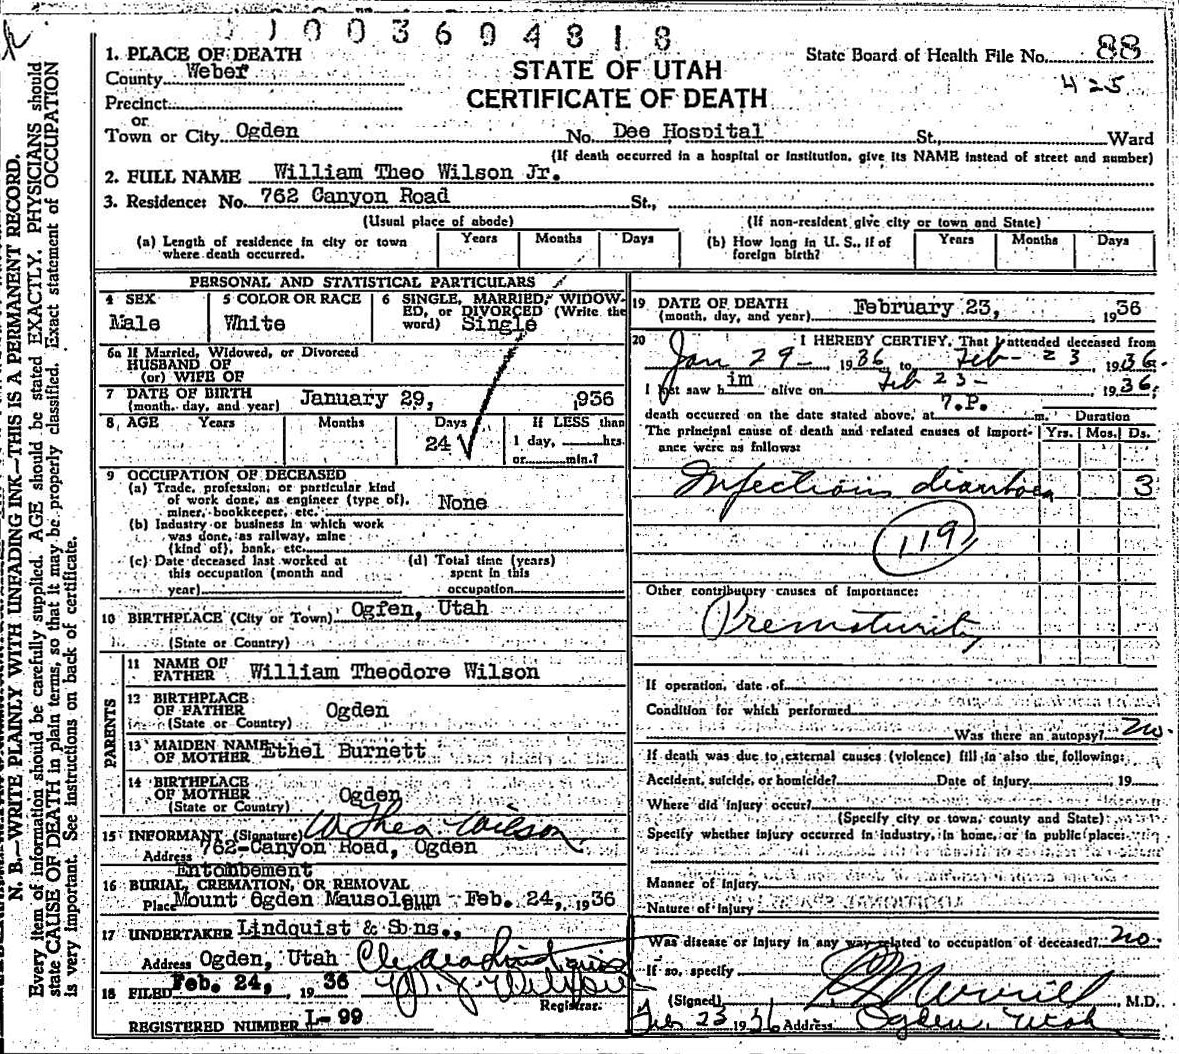 1003694818
1. PLACE OF DEATH
County Weber
Precinct
or
Town or City Ogden No. Dee Hospital St., Ward
STATE OF UTAH
CERTIFICATE OF DEATH
State Board of Health File No. 88
425
(If death occurred in a hospital or institution, give its NAME instead of street and number)
2. FULL NAME William Theo Wilson Jr.
3. Residence: No. 762 Canyon Road St.,
(Usual place of abode) (If non-resident give city or town and State)
(a) Length of residence in city or town where death occurred. Years Months Days
(b) How long in U. S., if of foreign birth? Years Months Days
PERSONAL AND STATISTICAL PARTICULARS
4 SEX
Male
5 COLOR OR RACE
White
6 SINGLE, MARRIED, WIDOW-
ED, or DIVORCED (Write the
word) Single
6a If Married, Widowed, or Divorced
HUSBAND OF
(or) WIFE OF
7 DATE OF BIRTH
(month, day, and year) January 29, 1936
8 AGE Years Months Days If LESS than
24 1 day, hrs.
or min.?
9 OCCUPATION OF DECEASED
(a) Trade, profession, or particular kind
of work done, as engineer (type of),
miner, bookkeeper, etc. None
(b) Industry or business in which work
was done, as railway, mine
(kind of), bank, etc.
(c) Date deceased last worked at
this occupation (month and
year)
(d) Total time (years)
spent in this
occupation
10 BIRTHPLACE (City or Town) Ogfen, Utah
(State or Country)
PARENTS
11 NAME OF
FATHER William Theodore Wilson
12 BIRTHPLACE
OF FATHER Ogden
(State or Country)
13 MAIDEN NAME
OF MOTHER Ethel Burnett
14 BIRTHPLACE
OF MOTHER Ogden
(State or Country)
15 INFORMANT (Signature) W Theo Wilson
Address 762-Canyon Road, Ogden
Entombement
16 BURIAL, CREMATION, OR REMOVAL
Place Mount Ogden Mausoleum Date Feb. 24, 1936
17 UNDERTAKER Lindquist & Sons.,
Address Ogden, Utah
18 FILED Feb. 24, 1936
Registrar.
REGISTERED NUMBER L-99
19 DATE OF DEATH
(month, day, and year) February 23, 1936
20 I HEREBY CERTIFY, That I attended deceased from
Jan 29- 1936 to Feb- 23 1936.
I last saw him alive on Feb 23- 1936;
death occurred on the date stated above, at 7.P. m.
Duration
The principal cause of death and related causes of import-
ance were as follows:
Yrs. Mos. Ds.
Infectious diarrhoea 3
119
Other contributory causes of importance:
Prematurity
If operation, date of
Condition for which performed
Was there an autopsy? no.
If death was due to external causes (violence) fill in also the following:
Accident, suicide, or homicide? Date of injury 19
Where did injury occur?
(Specify city or town, county and State)
Specify whether injury occurred in industry, in home, or in public place:
Manner of injury
Nature of injury
Was disease or injury in any way related to occupation of deceased? no.
If so, specify
(Signed) Merrill M.D.
Feb 23 1936 Address Ogden, Utah
N. B.—WRITE PLAINLY WITH UNFADING INK—THIS IS A PERMANENT RECORD.
Every item of information should be carefully supplied. AGE should be stated EXACTLY. PHYSICIANS should
state CAUSE OF DEATH in plain terms, so that it may be properly classified. Exact statement of OCCUPATION
is very important. See instructions on back of certificate.